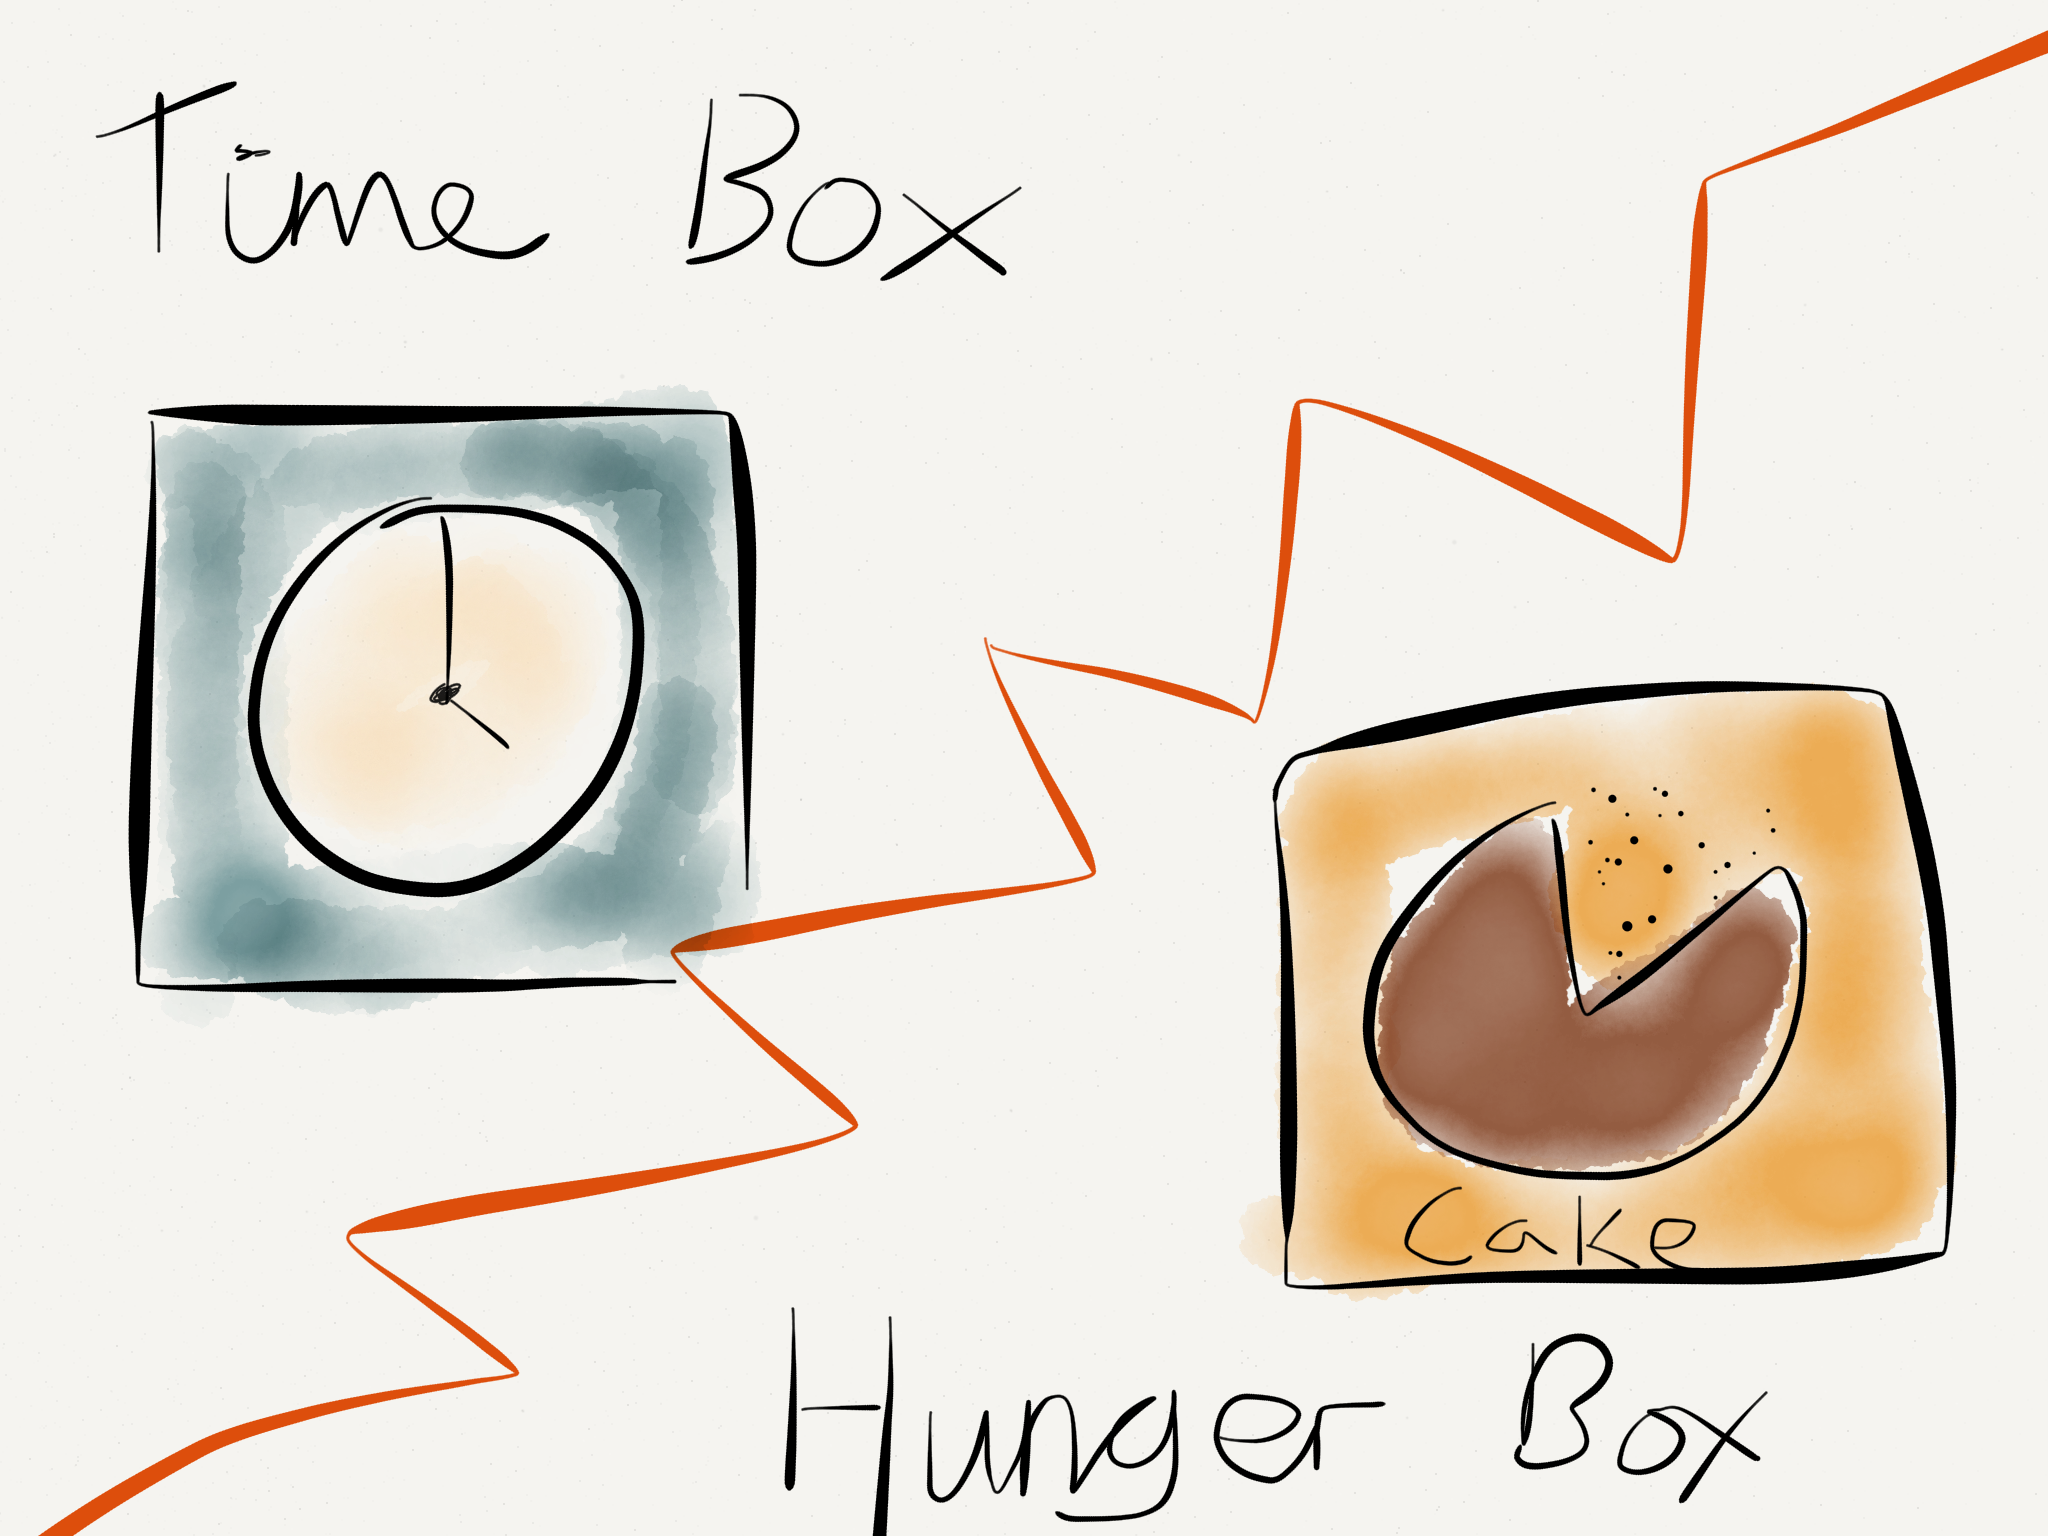 Time Box
Cake
Hunger Box